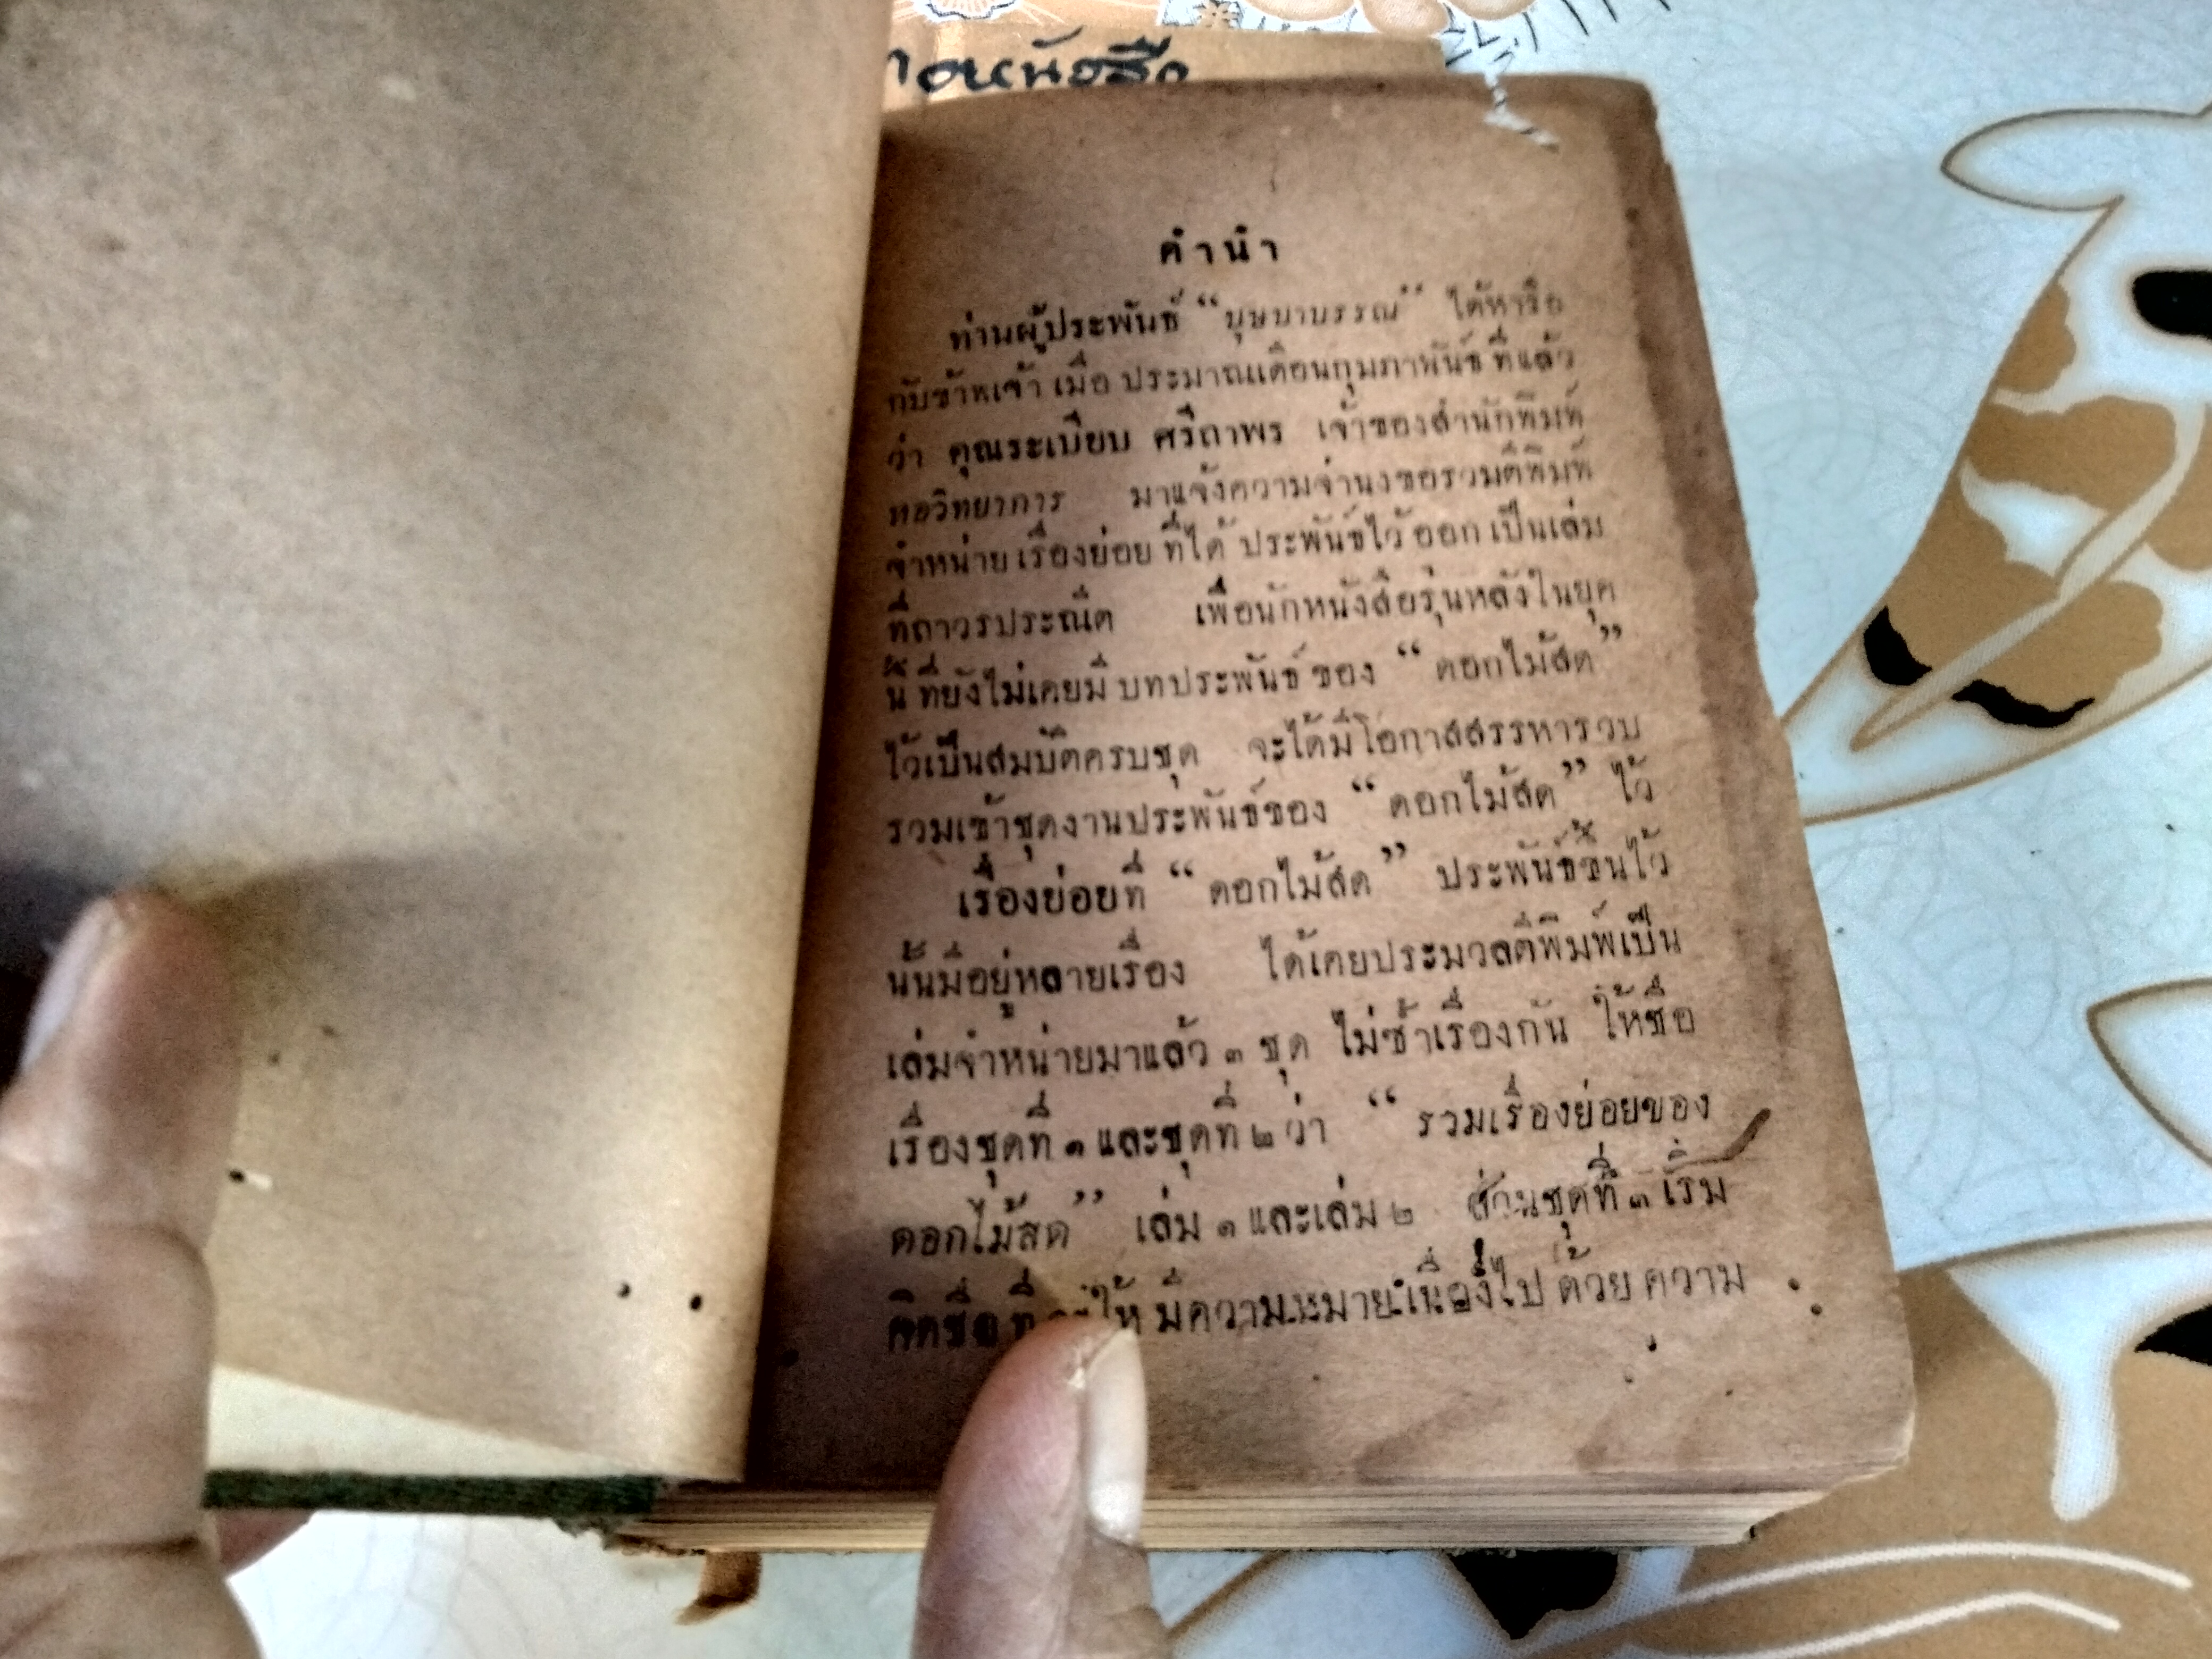 หนังสือ
คำนำ
ท่านผู้ประพันธ์ “บุษบาบรรณ” ได้หารือ
กับข้าพเจ้า เมื่อ ประมาณเดือนกุมภาพันธ์ ที่แล้ว
ว่า คุณระเบียบ ศรีถาพร เจ้าของสำนักพิมพ์
หอวิทยาการ มาแจ้งความจำนงขอรวมตีพิมพ์
จำหน่าย เรื่องย่อย ที่ได้ ประพันธ์ไว้ ออก เป็นเล่ม
ที่ถาวรประณีต เพื่อนักหนังสือรุ่นหลังในยุค
นี้ ที่ยังไม่เคยมี บทประพันธ์ ของ “ ดอกไม้สด”
ไว้เป็นสมบัติครบชุด จะได้มีโอกาสสรรหารวบ
รวมเข้าชุดงานประพันธ์ของ “ ดอกไม้สด” ไว้
เรื่องย่อยที่ “ ดอกไม้สด ” ประพันธ์ขึ้นไว้
นั้นมีอยู่หลายเรื่อง ได้เคยประมวลตีพิมพ์เป็น
เล่มจำหน่ายมาแล้ว ๓ ชุด ไม่ซ้ำเรื่องกัน ให้ชื่อ
เรื่องชุดที่ ๑ และชุดที่ ๒ ว่า “ รวมเรื่องย่อยของ
ดอกไม้สด” เล่ม ๑ และเล่ม ๒ ส่วนชุดที่ ๓ เริ่ม
คิดชื่อ ที่ ให้ มีความหมายเนื่องไป ด้วย ความ